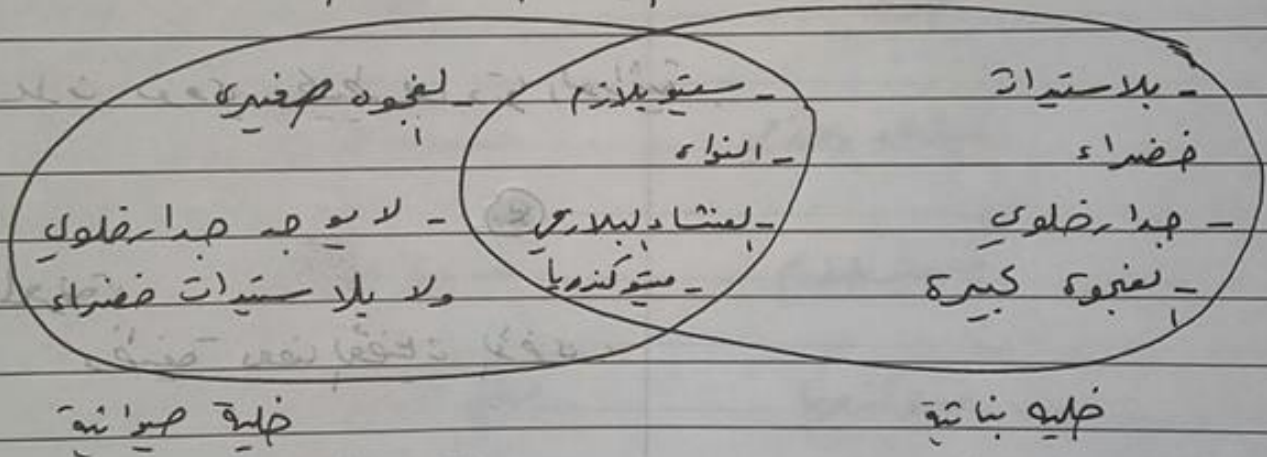 - بلاستيدات
خضراء
- جدار خلوي
- الفجوة كبيرة
- سيتوبلازم
- النواة
- الغشاء البلازمي
- ميتوكندريا
- الفجوة صغيرة
- لا يوجد جدار خلوي
ولا بلاستيدات خضراء
خلية نباتية
خلية حيوانية